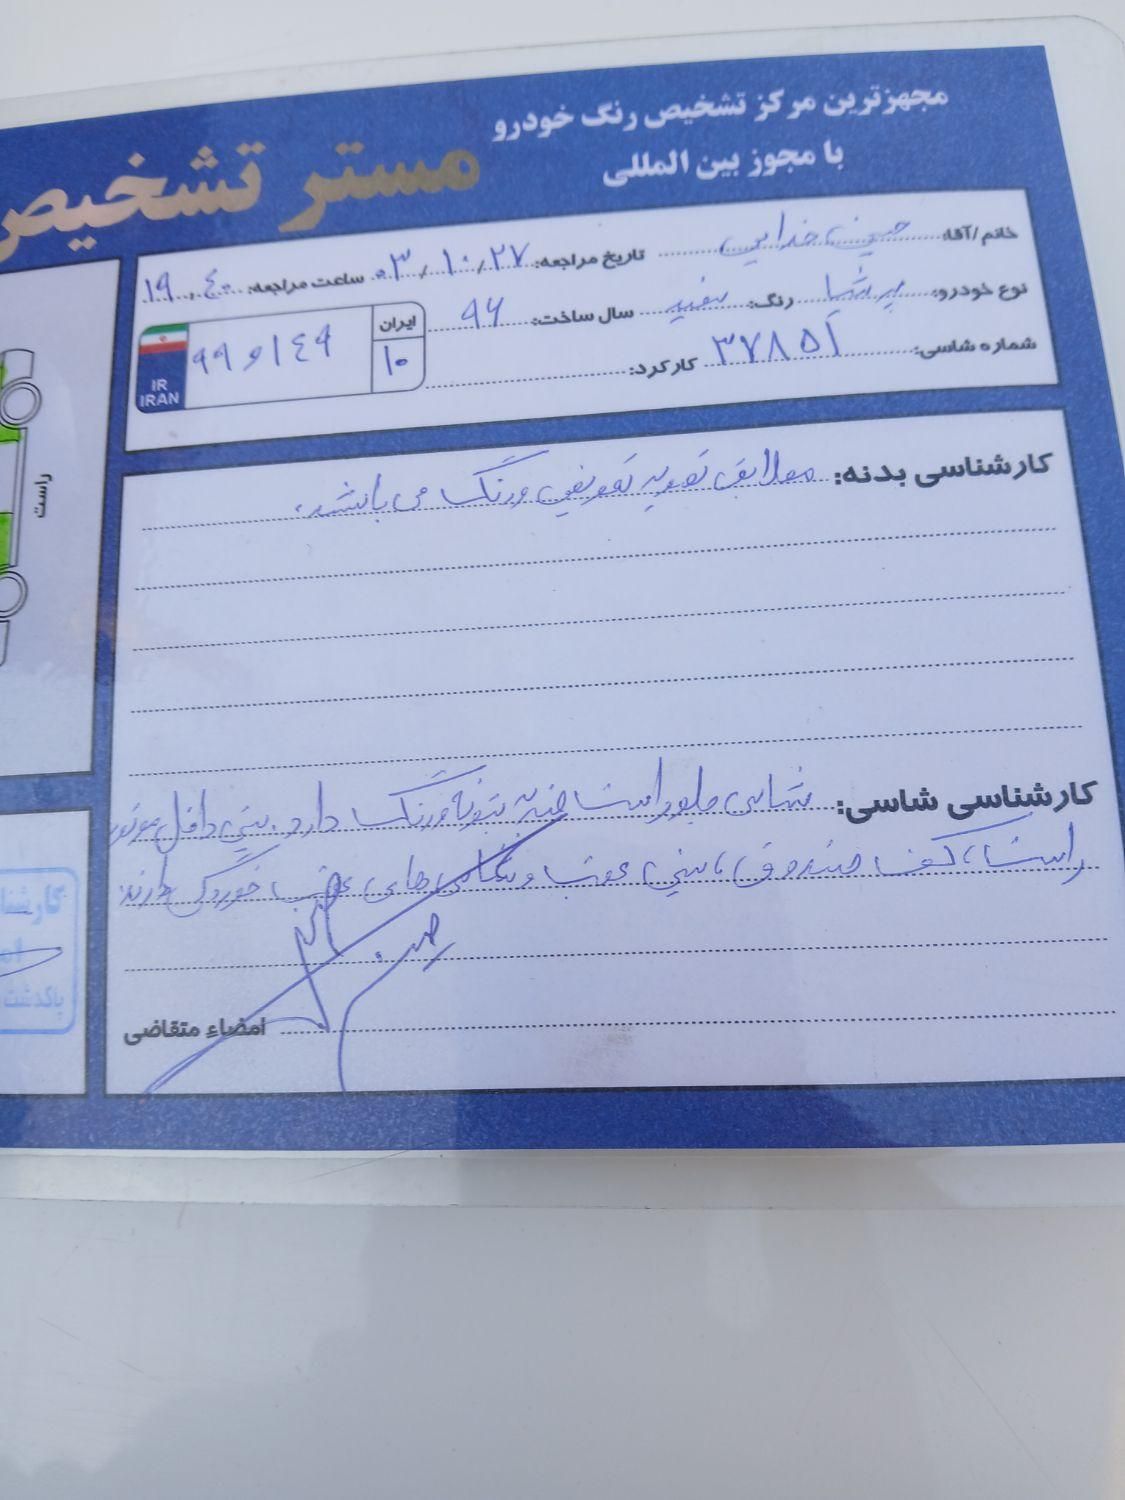 مجهزترین مرکز تشخیص رنگ خودرو
با مجوز بین المللی
مستر تشخیص
خانم/آقا: حسین خدایی تاریخ مراجعه: ۰۳/۱۰/۲۷ ساعت مراجعه: ۱۹:۴۰
نوع خودرو: پرشیا رنگ: سفید سال ساخت: ۹۶
شماره شاسی: ۳۷۸۵۱ کارکرد:
ایران
۱۰
۹۹ و ۱۴۹
IR
IRAN
راست
کارشناسی بدنه: مطابق تصویر تعویض و رنگ می باشد.
کارشناسی شاسی: شاسی جلو راست ضربه بتونه و رنگ دارد. سینی داخل موتور
راست، کف صندوق، سینی عقب و شاسی های عقب خوردگی دارند.
امضاء متقاضی
کارشنا
پاکدشت